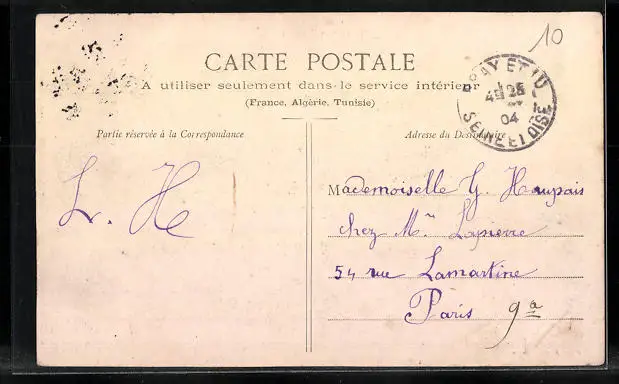 10
CARTE POSTALE
A utiliser seulement dans le service intérieur
(France, Algérie, Tunisie)
04
SEINE ET OISE
Partie réservée à la Correspondance
Adresse du Destinataire
L. H
Mademoiselle G. Haupais
chez Mr Lapierre
54 rue Lamartine
Paris 9a